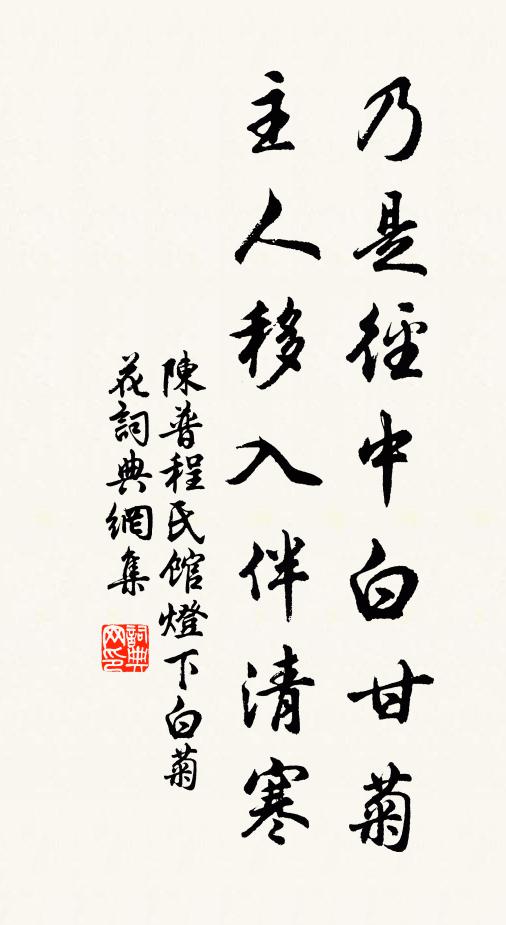 乃是徑中白甘菊
主人移入伴清寒
陳普程氏館燈下白菊
花詞典網集
詞典网印